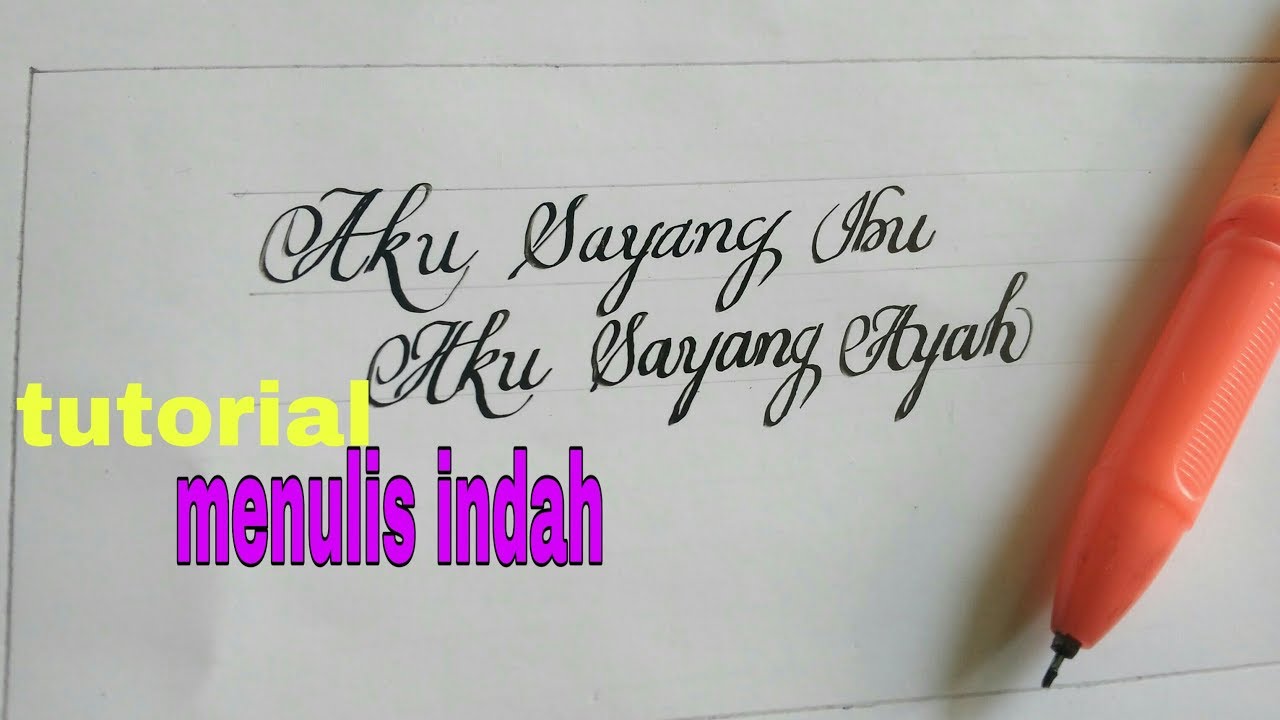 Aku Sayang Ibu
Aku Sayang Ayah
tutorial
menulis indah